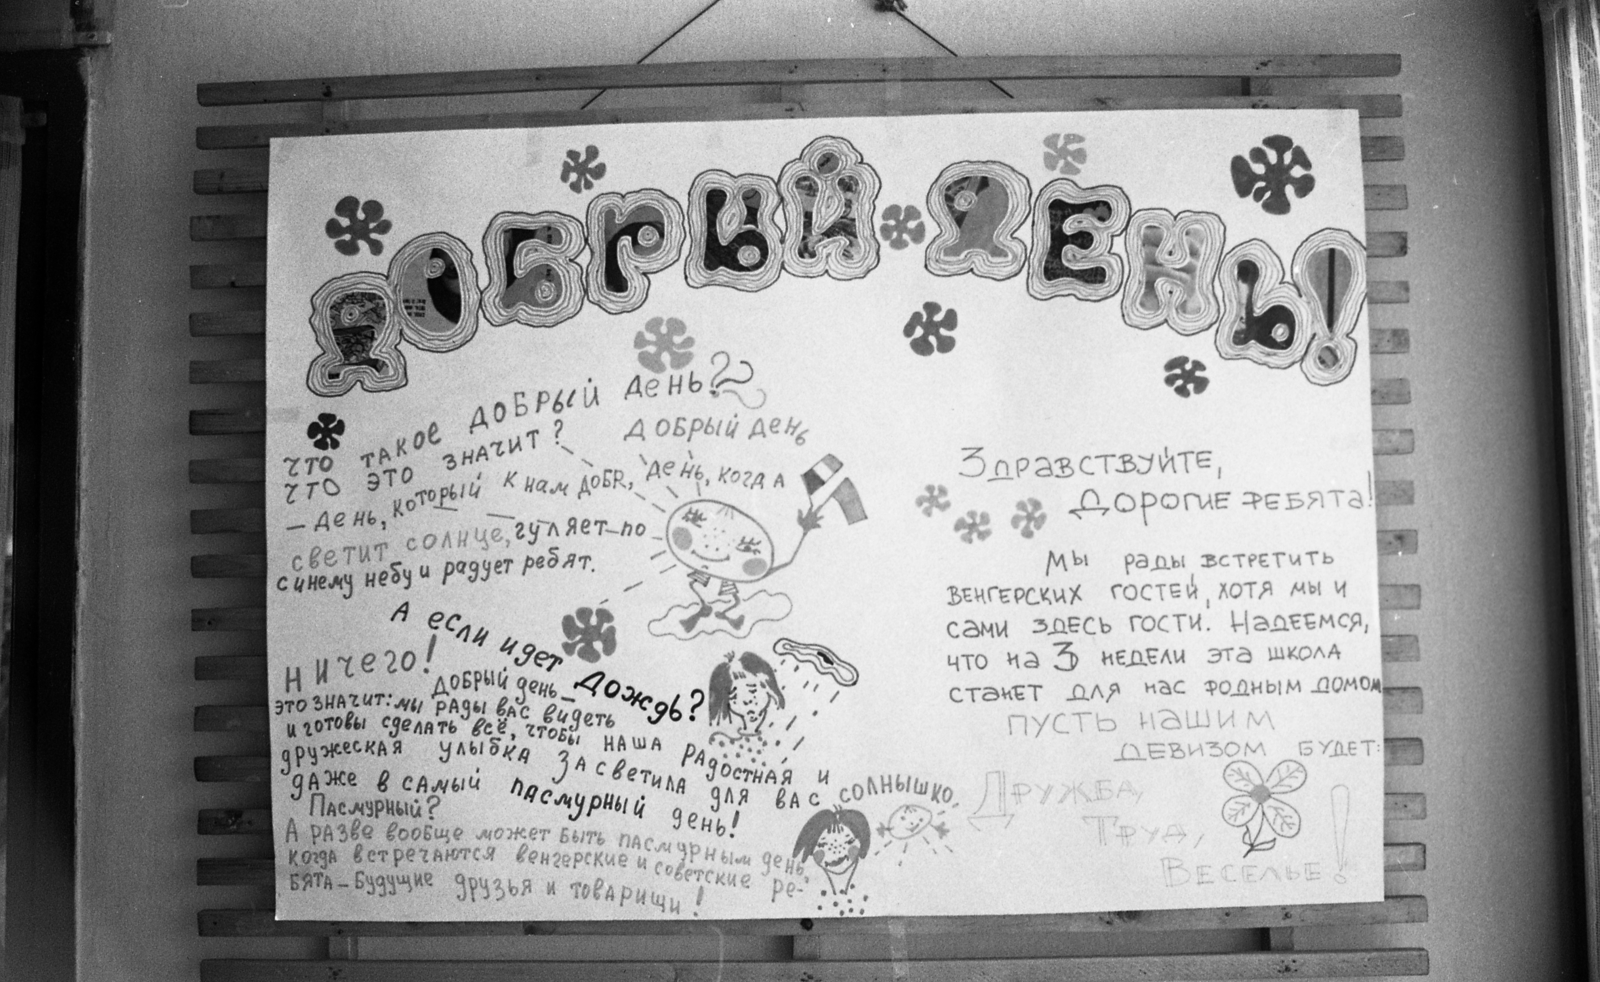 ДОБРЫЙ ДЕНЬ!
ЧТО ТАКОЕ ДОБРЫЙ ДЕНЬ?
ЧТО ЭТО ЗНАЧИТ? ДОБРЫЙ ДЕНЬ
— ДЕНЬ, КОТОРЫЙ К НАМ ДОБР, ДЕНЬ, КОГДА
СВЕТИТ СОЛНЦЕ, ГУЛЯЕТ ПО
СИНЕМУ НЕБУ И РАДУЕТ РЕБЯТ.
А ЕСЛИ ИДЕТ ДОЖДЬ?
НИЧЕГО!
ДОБРЫЙ ДЕНЬ —
ЭТО ЗНАЧИТ: МЫ РАДЫ ВАС ВИДЕТЬ
И ГОТОВЫ СДЕЛАТЬ ВСЁ, ЧТОБЫ НАША РАДОСТНАЯ И
ДРУЖЕСКАЯ УЛЫБКА ЗАСВЕТИЛА ДЛЯ ВАС СОЛНЫШКО
ДАЖЕ В САМЫЙ ПАСМУРНЫЙ ДЕНЬ!
ПАСМУРНЫЙ?
А РАЗВЕ ВООБЩЕ МОЖЕТ БЫТЬ ПАСМУРНЫМ ДЕНЬ,
КОГДА ВСТРЕЧАЮТСЯ ВЕНГЕРСКИЕ И СОВЕТСКИЕ РЕ-
БЯТА — БУДУЩИЕ ДРУЗЬЯ И ТОВАРИЩИ!
ЗДРАВСТВУЙТЕ,
ДОРОГИЕ РЕБЯТА!
МЫ РАДЫ ВСТРЕТИТЬ
ВЕНГЕРСКИХ ГОСТЕЙ, ХОТЯ МЫ И
САМИ ЗДЕСЬ ГОСТИ. НАДЕЕМСЯ,
ЧТО НА 3 НЕДЕЛИ ЭТА ШКОЛА
СТАНЕТ ДЛЯ НАС РОДНЫМ ДОМОМ
ПУСТЬ НАШИМ
ДЕВИЗОМ БУДЕТ:
ДРУЖБА,
ТРУД,
ВЕСЕЛЬЕ!